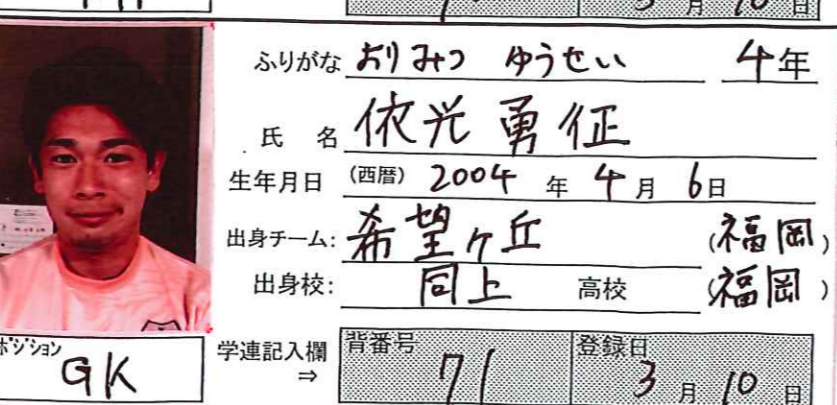 3月10日
ふりがな おりみつ ゆうせい 4年
氏名 依光勇征
生年月日 (西暦) 2004年4月6日
出身チーム: 希望ヶ丘 (福岡)
出身校: 同上 高校 (福岡)
ポジション GK
学連記入欄 ⇒ 背番号 71 登録日 3月10日